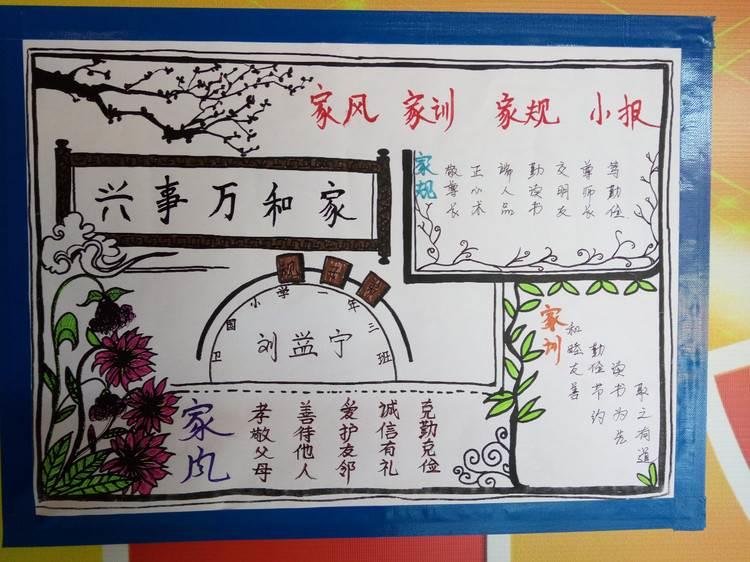 家风 家训 家规 小报
兴事万和家
家规
敬尊长
正心术
端人品
勤读书
交明友
尊师长
笃勤俭
卫国小学一年三班
刘益宁
家训
和睦友善
勤俭节约
读书为先
取之有道
家风
孝敬父母
善待他人
爱护友邻
诚信有礼
克勤克俭